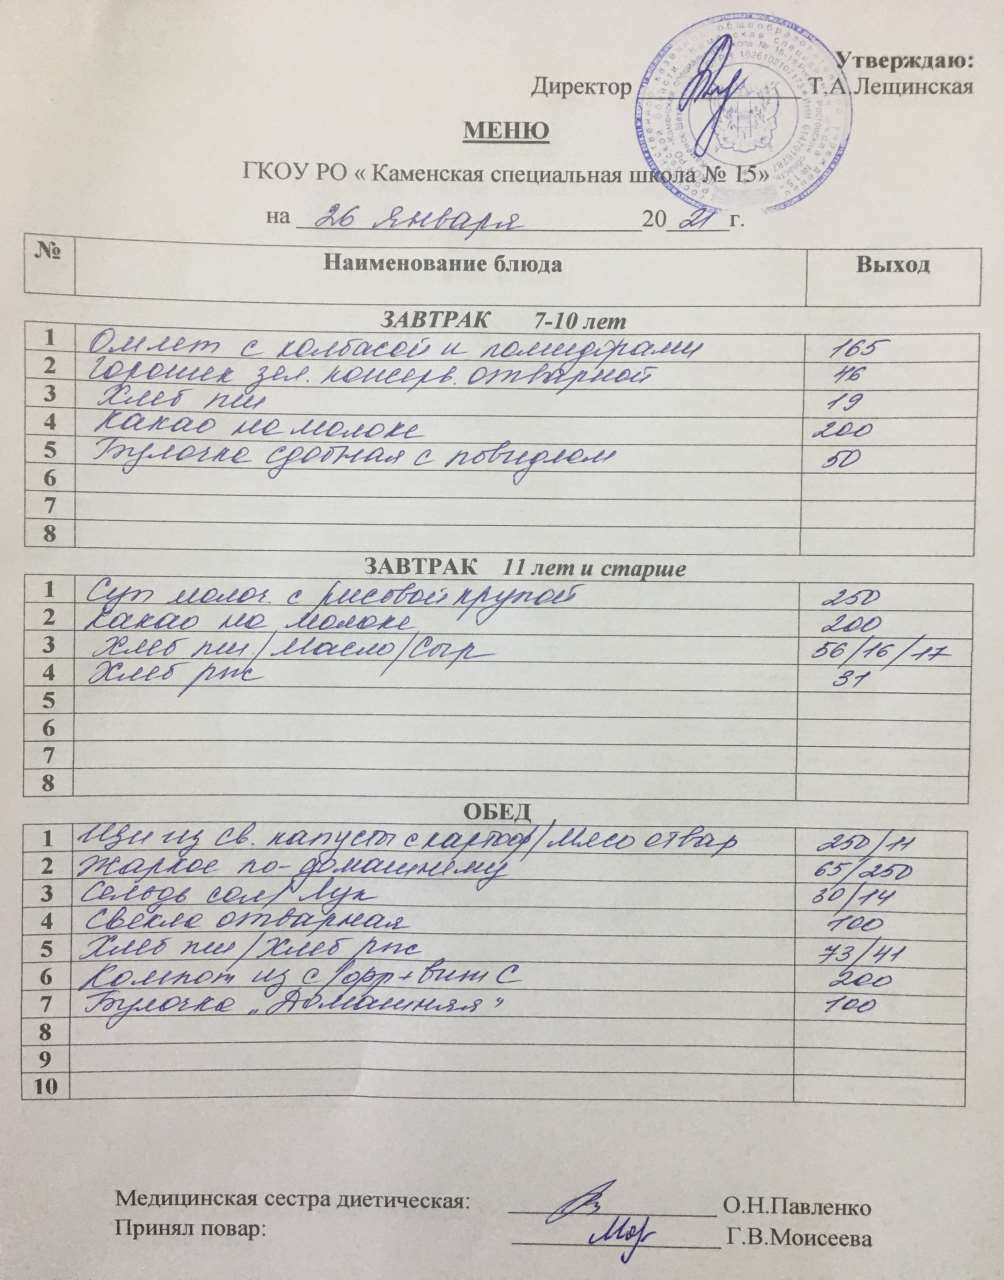 Утверждаю:
Директор Т.А.Лещинская
МЕНЮ
ГКОУ РО « Каменская специальная школа № 15»
на 26 января 2021 г.
№ Наименование блюда Выход
ЗАВТРАК 7-10 лет
1 Омлет с колбасой и помидорами 165
2 Горошек зел. консерв. отварной 46
3 Хлеб пш 19
4 Какао на молоке 200
5 Булочка сдобная с повидлом 50
6
7
8
ЗАВТРАК 11 лет и старше
1 Суп молоч. с рисовой крупой 250
2 Какао на молоке 200
3 Хлеб пш./Масло/Сыр 56/16/17
4 Хлеб рж 31
5
6
7
8
ОБЕД
1 Щи из св. капусты с картоф/Мясо отвар 250/11
2 Жаркое по-домашнему 65/250
3 Сельдь сол/Лук 30/14
4 Свекла отварная 100
5 Хлеб пш/Хлеб рж 73/41
6 Компот из с/фр+вит С 200
7 Булочка „Домашняя" 100
8
9
10
Медицинская сестра диетическая: О.Н.Павленко
Принял повар: Г.В.Моисеева